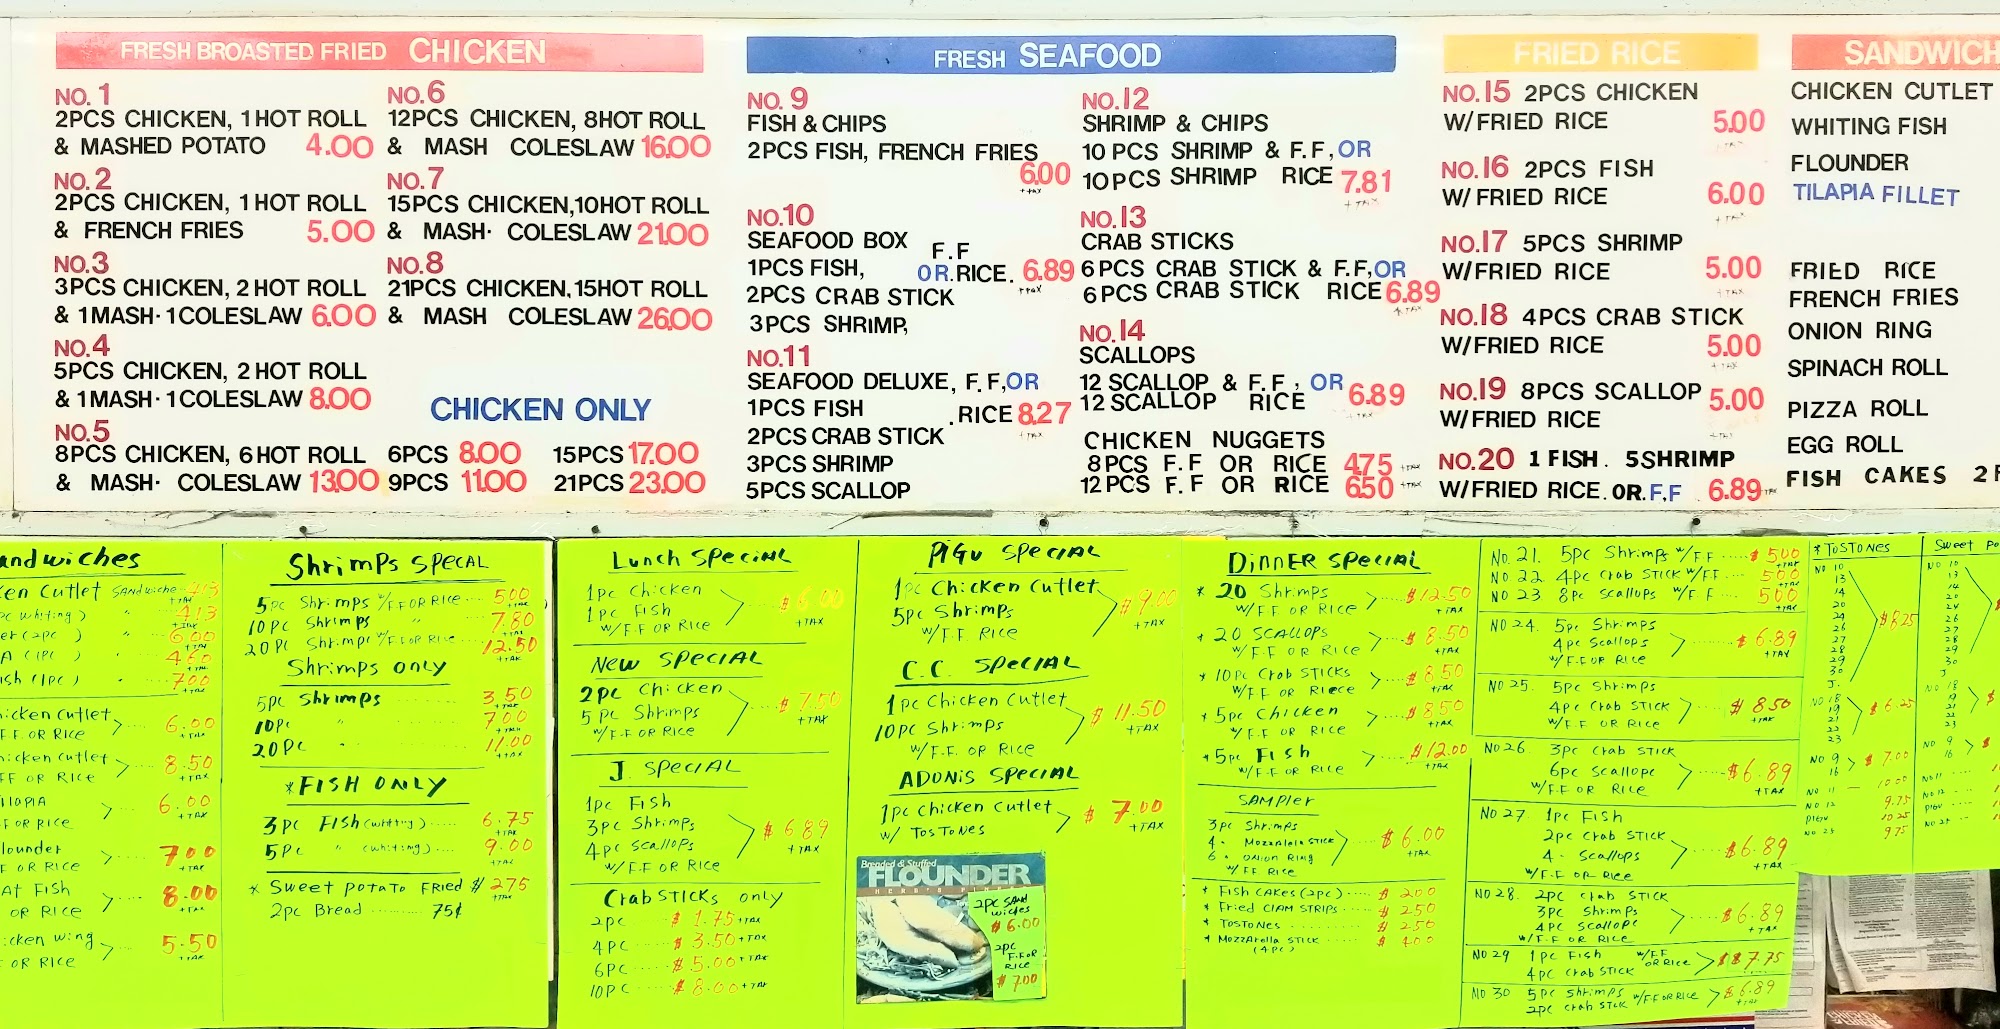 FRESH BROASTED FRIED CHICKEN
NO. 1
2PCS CHICKEN, 1HOT ROLL
& MASHED POTATO 4.00
NO. 2
2PCS CHICKEN, 1HOT ROLL
& FRENCH FRIES 5.00
NO. 3
3PCS CHICKEN, 2HOT ROLL
& 1MASH·1COLESLAW 6.00
NO. 4
5PCS CHICKEN, 2HOT ROLL
& 1MASH·1COLESLAW 8.00
NO. 5
8PCS CHICKEN, 6HOT ROLL
& MASH· COLESLAW 13.00
NO. 6
12PCS CHICKEN, 8HOT ROLL
& MASH COLESLAW 16.00
NO. 7
15PCS CHICKEN,10HOT ROLL
& MASH· COLESLAW 21.00
NO. 8
21PCS CHICKEN,15HOT ROLL
& MASH COLESLAW 26.00
CHICKEN ONLY
6PCS 8.00 15PCS 17.00
9PCS 11.00 21PCS 23.00
FRESH SEAFOOD
NO. 9
FISH & CHIPS
2PCS FISH, FRENCH FRIES
6.00
+TAX
NO.10
SEAFOOD BOX F.F
1PCS FISH, OR.RICE. 6.89
+TAX
2PCS CRAB STICK
3PCS SHRIMP,
NO.11
SEAFOOD DELUXE, F.F,OR
1PCS FISH .RICE 8.27
+TAX
2PCS CRAB STICK
3PCS SHRIMP
5PCS SCALLOP
NO.12
SHRIMP & CHIPS
10 PCS SHRIMP & F.F, OR
10PCS SHRIMP RICE 7.81
+TAX
NO.13
CRAB STICKS
6PCS CRAB STICK & F.F,OR
6PCS CRAB STICK RICE 6.89
+TAX
NO.14
SCALLOPS
12 SCALLOP & F.F, OR
12 SCALLOP RICE 6.89
+TAX
CHICKEN NUGGETS
8PCS F.F OR RICE 4.75 +TAX
12PCS F.F OR RICE 6.50 +TAX
FRIED RICE
NO.15 2PCS CHICKEN
W/FRIED RICE 5.00
+TAX
NO.16 2PCS FISH
W/FRIED RICE 6.00
+TAX
NO.17 5PCS SHRIMP
W/FRIED RICE 5.00
+TAX
NO.18 4PCS CRAB STICK
W/FRIED RICE 5.00
+TAX
NO.19 8PCS SCALLOP
W/FRIED RICE 5.00
+TAX
NO.20 1 FISH. 5SHRIMP
W/FRIED RICE. OR.F,F 6.89 +TAX
SANDWICH
CHICKEN CUTLET
WHITING FISH
FLOUNDER
TILAPIA FILLET
FRIED RICE
FRENCH FRIES
ONION RING
SPINACH ROLL
PIZZA ROLL
EGG ROLL
FISH CAKES 2
andwiches
en Cutlet Sandwiche 4.13
+TAX
c whiting) " 4.13
+TAX
er(2pc) " 6.00
+TAX
A (1pc) " 4.60
+TAX
ish (1pc) " 7.00
+TAX
icken cutlet
F.F. OR Rice 6.00
+TAX
hicken cutlet
FF OR Rice 8.50
+TAX
ilapia
F OR Rice 6.00
+TAX
lounder
F OR Rice 7.00
+TAX
at Fish
OR Rice 8.00
+TAX
icken wing
OR Rice 5.50
+TAX
Shrimps Specal
5pc Shrimps w/F.F OR Rice 5.00
+TAX
10pc Shrimps " 7.80
+TAX
20pc Shrimps w/F.F OR Rice 12.50
+TAX
Shrimps only
5pc Shrimps 3.50
+TAX
10pc " 7.00
+TAX
20pc " 11.00
+TAX
*Fish only
3pc Fish (whiting) 6.75
+TAX
5pc " (whiting) 9.00
+TAX
* Sweet potato Fried $ 2.75
+TAX
2pc Bread 75¢
Lunch Special
1pc Chicken
1pc Fish $ 6.00
+TAX
w/F.F OR Rice
New Special
2pc Chicken
5pc Shrimps $ 7.50
+TAX
w/F.F OR Rice
J. Special
1pc Fish
3pc Shrimps
4pc Scallops $ 6.89
+TAX
w/F.F OR Rice
Crab Sticks only
2pc $ 1.75 +TAX
4pc $ 3.50 +TAX
6pc $ 5.00 +TAX
10pc $ 8.00 +TAX
PiGu Special
1pc Chicken Cutlet
5pc Shrimps $ 9.00
+TAX
w/F.F. Rice
C.C. Special
1pc Chicken Cutlet
10pc Shrimps $ 11.50
+TAX
w/F.F. OR Rice
Adonis Special
1pc Chicken Cutlet
w/ Tostones $ 7.00
+TAX
Breaded & Stuffed
FLOUNDER
2pc Sand
wiches
$ 6.00
2pc
F.F OR
Rice
$ 7.00
Dinner Special
* 20 Shrimps
w/F.F OR Rice $12.50
+TAX
* 20 Scallops
w/F.F OR Rice $ 8.50
+TAX
* 10pc Crab Sticks
w/F.F OR Riece $ 8.50
+TAX
* 5pc Chicken
w/F.F OR Rice $ 8.50
+TAX
* 5pc Fish
w/F.F OR Rice $12.00
+TAX
Sampler
3pc Shrimps
4 " Mozzalela Stick
6 " Onion Ring $ 6.00
+TAX
w/ FF Rice
* Fish Cakes (2pc) $ 2.00
* Fried Clam Strips $ 2.50
* Tostones $ 2.50
* Mozzarella Stick $ 4.00
(4pc)
No. 21. 5pc Shrimps w/F.F $ 5.00
+TAX
No 22. 4pc Crab Stick w/F.F 5.00
+TAX
No 23 8pc Scallops w/F.F 5.00
+TAX
No 24. 5pc Shrimps
4pc Scallops $ 6.89
+TAX
w/F.F OR Rice
No 25. 5pc Shrimps
4pc Crab Stick $ 8.50
+TAX
w/F.F OR Rice
No 26. 3pc Crab Stick
6pc Scallope $6.89
+TAX
w/F.F OR Rice
No 27. 1pc Fish
2pc Crab Stick
4 - Scallops $6.89
+TAX
w/F.F OR Rice
No 28. 2pc Crab Stick
3pc Shrimps
4pc Scallope $6.89
+TAX
w/F.F OR Rice
No 29 1pc Fish w/F.F
4pc Crab Stick OR Rice $8 7.75
No 30 5pc Shrimps w/F.F OR Rice $6.89
+TAX
2pc Crab Stick
* Tostones
No 10
13
14
20
24 $8.25
26
27
28
29
30
J.
No 18
19 $ 6.25
21
22
23
No 9 $ 7.00
16
No 11 10.00
No 12 9.75
PiGu 10.25
No 25 9.75
Sweet Po
No 10
13
14
20
24
26
27
28
29
30
J
No 18
19
21
22
23
No 9
16
No 11
No 12
PiGu
No 25